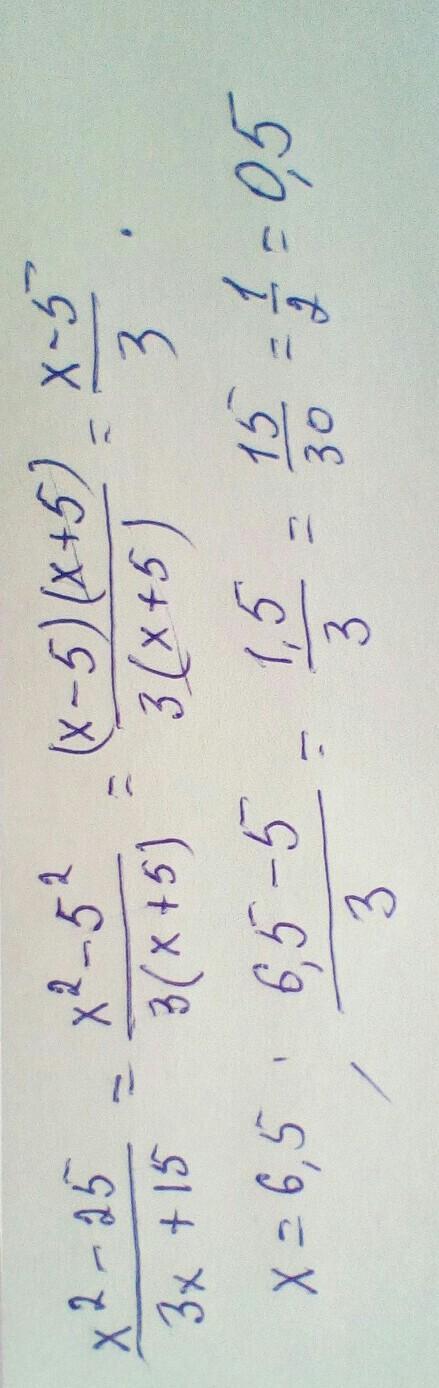 (x² − 25)/(3x + 15) = (x² − 5²)/(3(x + 5)) = ((x − 5)(x + 5))/(3(x + 5)) = (x − 5)/3 .
x = 6,5 . (6,5 − 5)/3 = 1,5/3 = 15/30 = 1/2 = 0,5